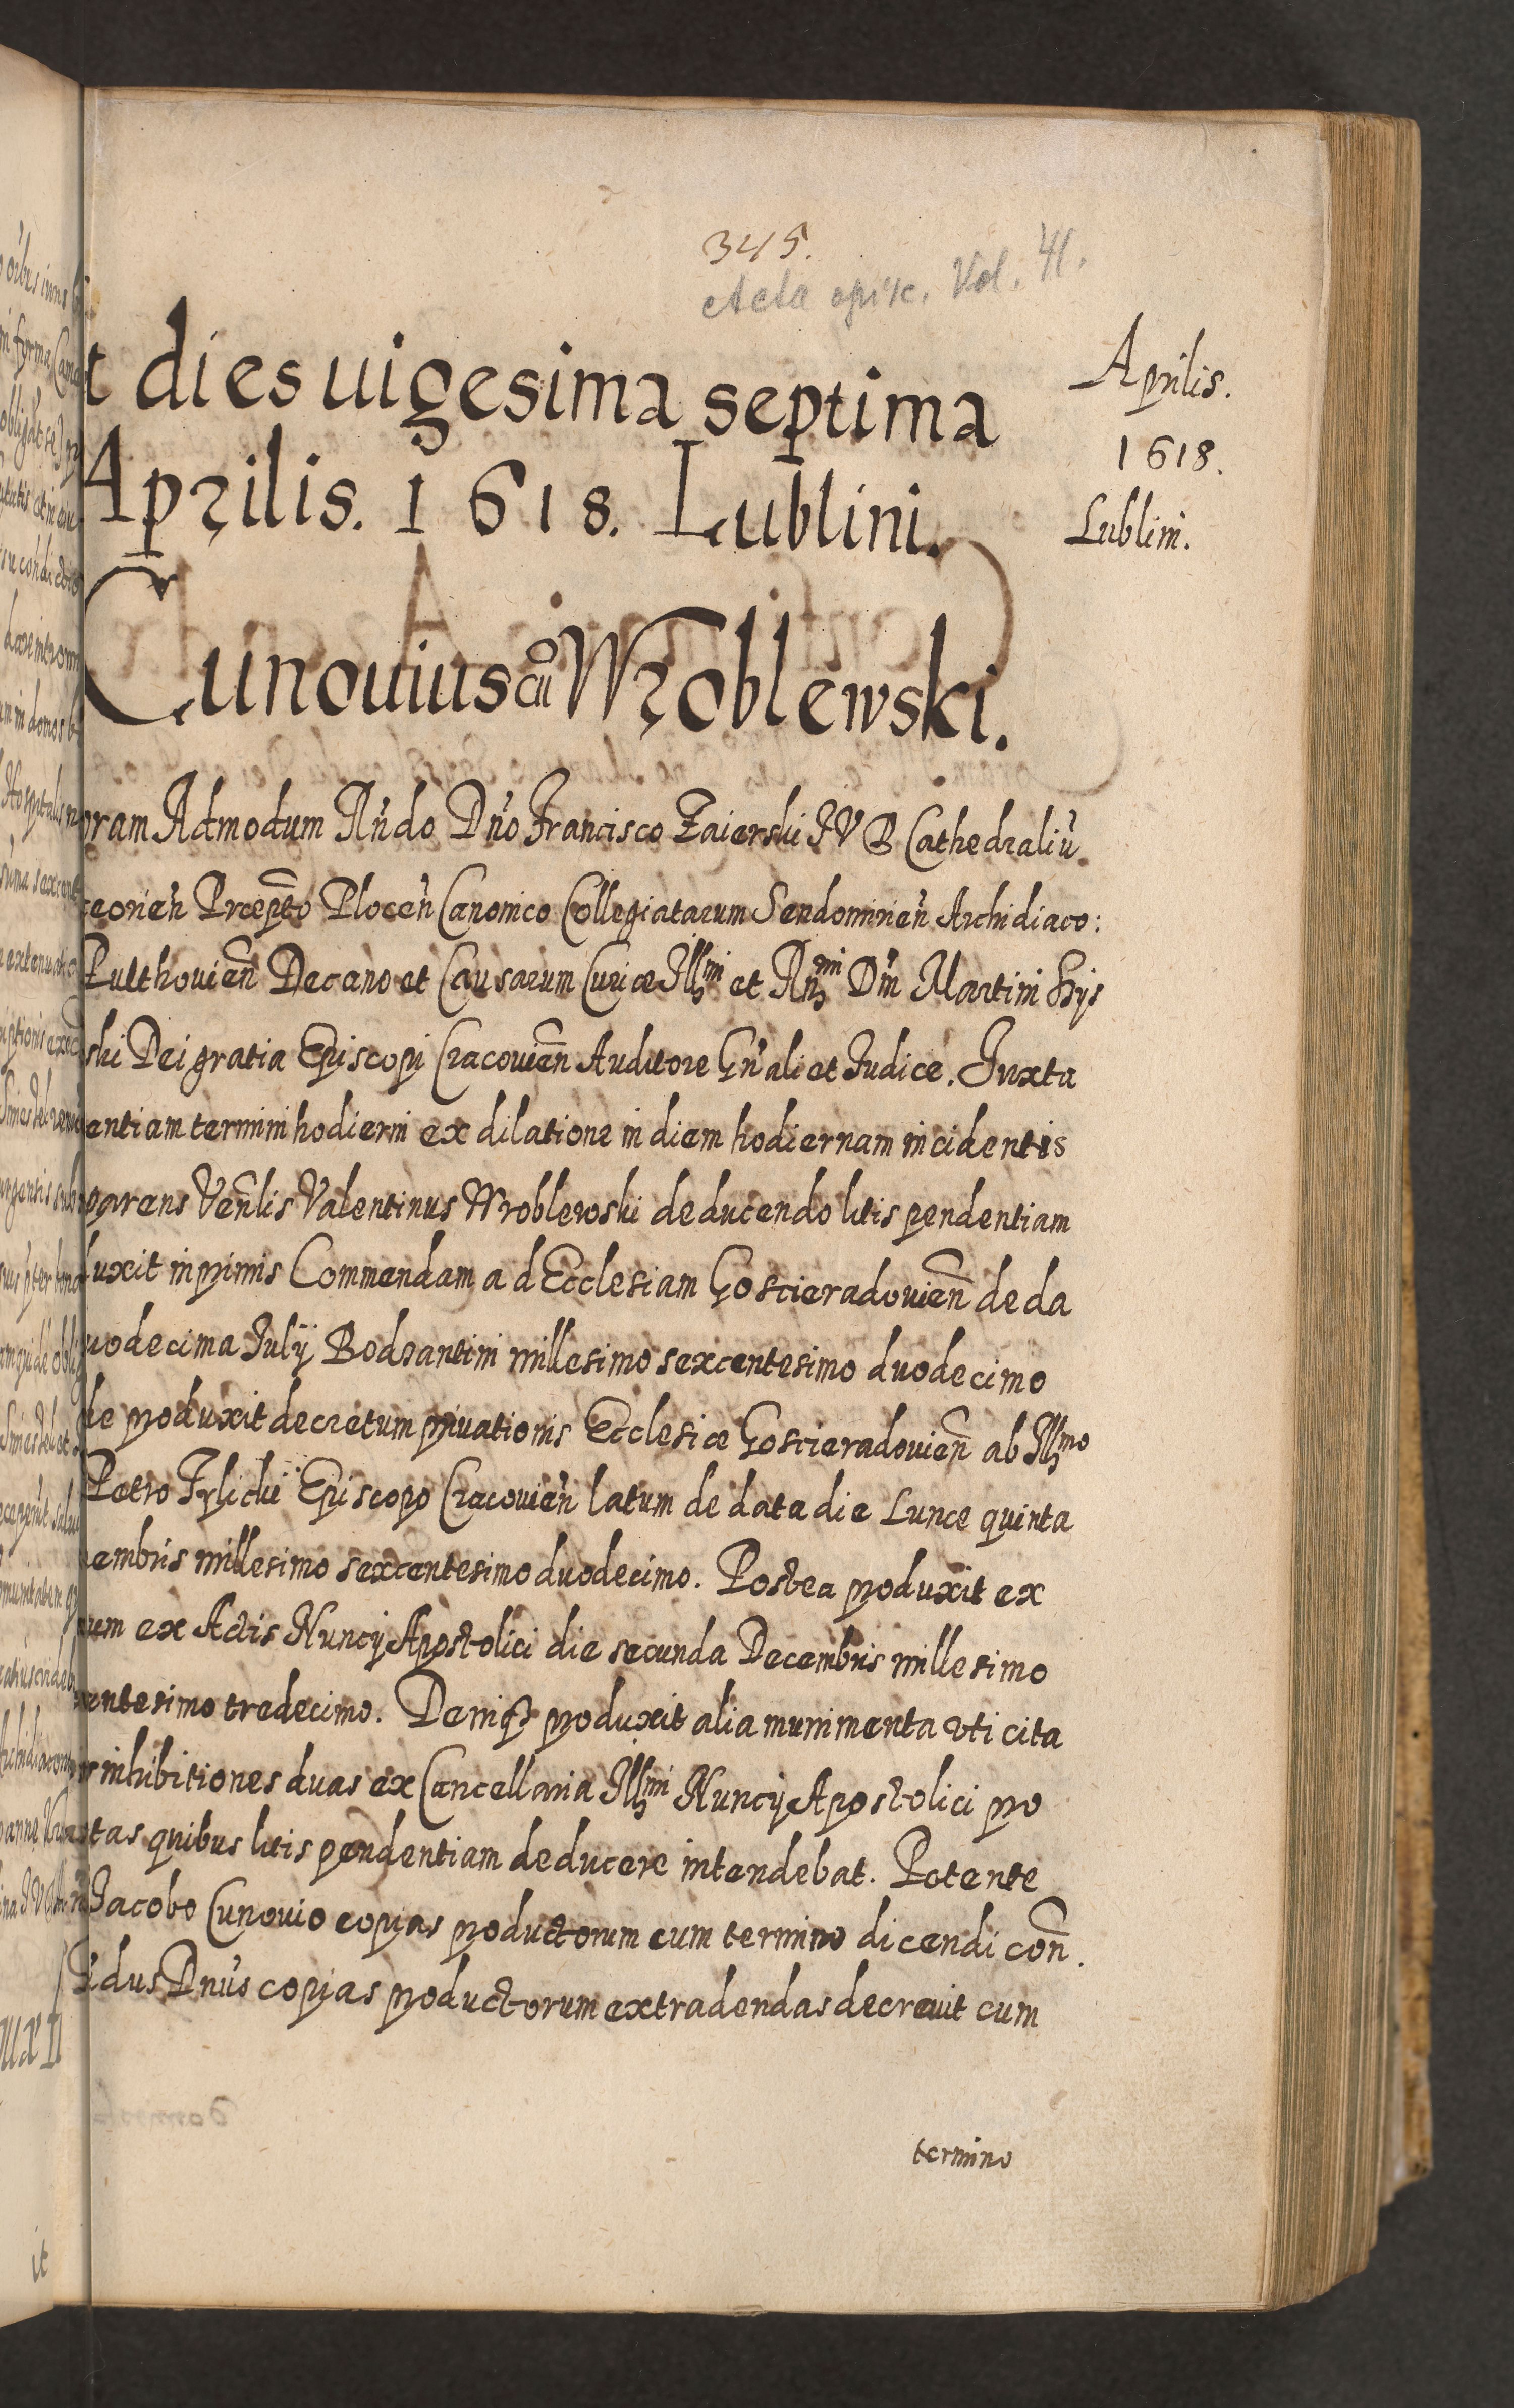 345.
Acta episc. Vol. 41.
t dies uigesima septima
Aprilis. 1618. Lublini.
Aprilis.
1618.
Lublini.
Cunouius cũ Wroblewski.
oram Admodum Rñdo Dño Francisco Zaierski IVD Cathedraliũ
Plocen̄ Canonico Collegiatarum Sendomirien̄ Archidiaco:
Pulthouien̄ Decano et Causarum Curiæ Illmi et Rmi Dni Martini Szys
ski Dei gratia Episcopi Cracouien̄ Auditore Gn̄ali et Iudice. Iuxta
entiam termini hodierni ex dilatione in diem hodiernam incidentis
parens Ven̄lis Valentinus Wroblewski deducendo litis pendentiam
uxit inprimis Commendam ad Ecclesiam Goscieradouien̄ de da
uodecima Iulÿ Bodzantini millesimo sexcentesimo duodecimo
de produxit decretum priuationis Ecclesiæ Goscieradouien̄ ab Illmo
Petro Tylicki Episcopo Cracouien̄ latum de data die Lunæ quinta
embris millesimo sexcentesimo duodecimo. Postea produxit ex
um ex Actis Nuncÿ Apostolici die secunda Decembris millesimo
entesimo tredecimo. Deniq3 produxit alia munimenta vti cita
inhibitiones duas ex Cancellaria Illmi Nuncÿ Apostolici pro
tas quibus litis pendentiam deducere intendebat. Petente
Iacobo Cunouio copias productorum cum termino dicendi con̄.
dus Dnus copias productorum extradendas decreuit cum
termino